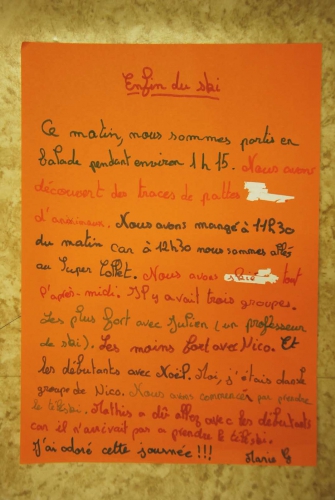 Enfin du ski
Ce matin, nous sommes partis en
balade pendant environ 1h15. Nous avons
découvert des traces de pattes
d'animaux. Nous avons mangé à 11H30
du matin car à 12h30 nous sommes allés
au Super Collet. Nous avons skié tout
l'après-midi. Il y avait trois groupes.
Les plus fort avec Julien (un professeur
de ski). Les moins fort avec Nico. Et
les débutants avec Noël. Moi, j'étais dans le
groupe de Nico. Nous avons commencer par prendre
le téléski. Mathis a dû allez avec les débutants
car il n'arrivait pas a prendre le téléski.
J'ai adoré cette journée !!!
Marie